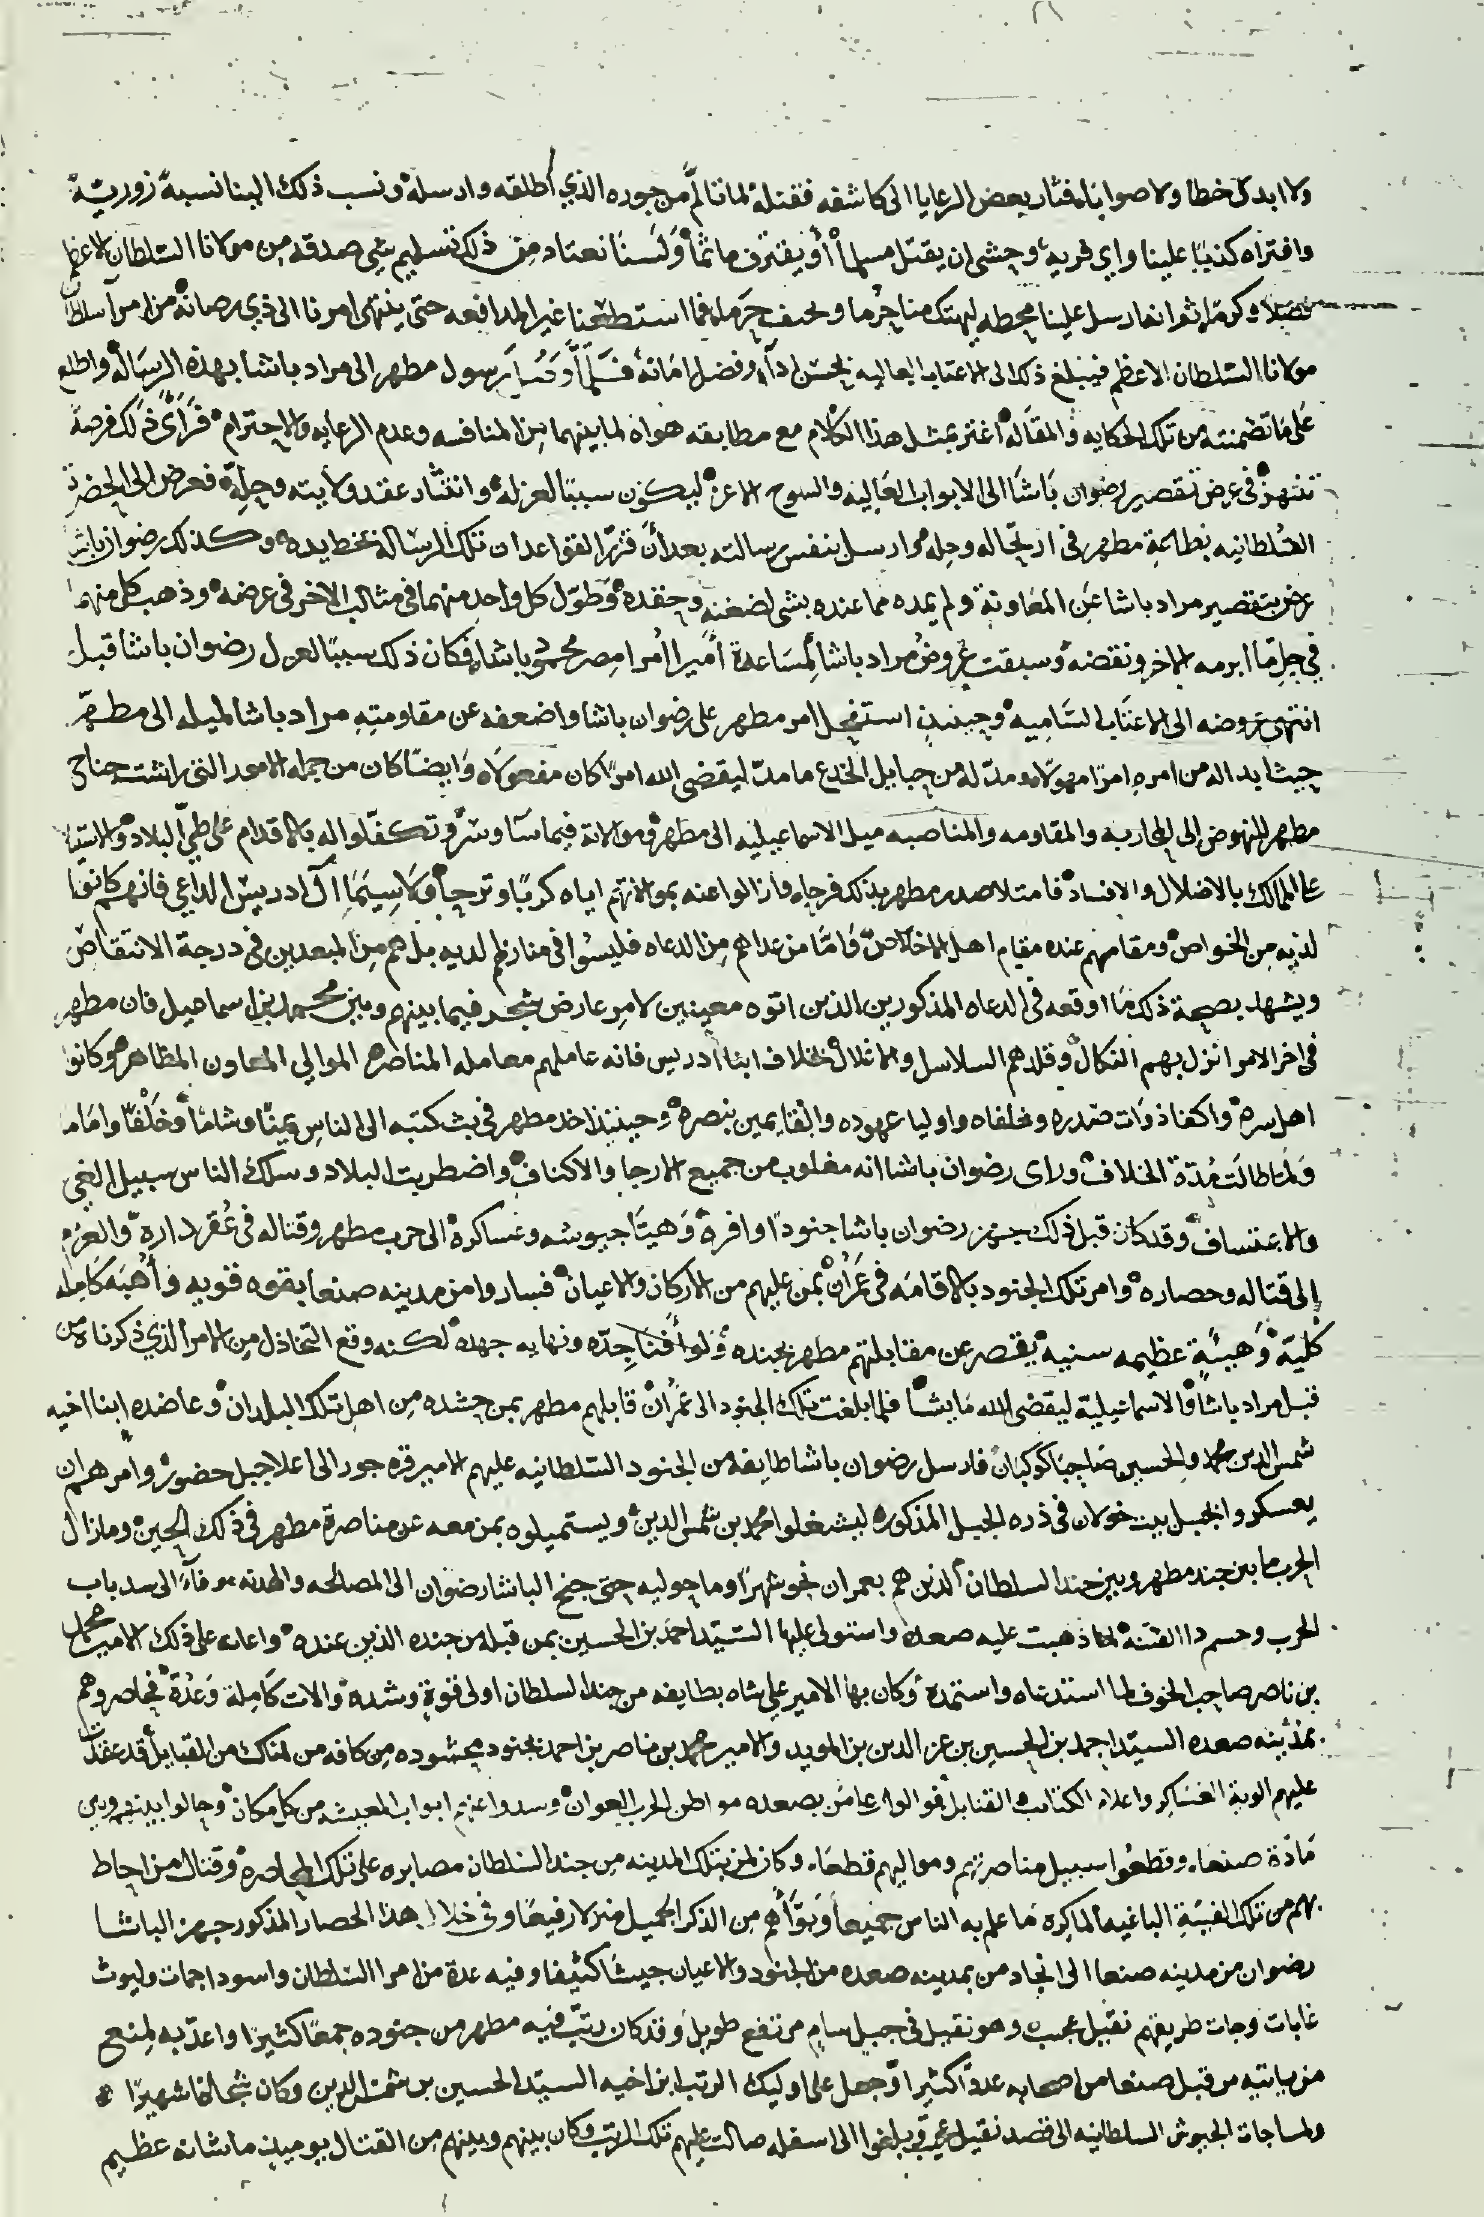 ولا ابد كل خطا ولا صوابنا فثار بعض الرعايا الى كاشفه فقتله لما نالم من جوره الذي اطلقه وارسله ونسب ذلك الينا نسبة زورية
وافتراه كذبا علينا واي فريه وحشى ان يقتل مسلما أو يقترف ماثما ولسنا نعتاد من ذلك تسليم شي صدقه من مولانا السلطان الاعظم
تفضلا وكرما ثم انه ارسل علينا محطه ليهتك منا حرما وتحيف حرما فما استطعنا غير المدافعه حتى ينتهى امرنا الى ذي رصانة من امرآ سلطان
مولانا السلطان الاعظم فيبلغ ذلك الى الاعتاب العاليه بحسن ادآء وفضل امانة فلما وصل رسول مطهر الى مراد باشا بهذه الرسالة واطلع
على ما تضمنته من تلك الحكايه والمقاله اغتر بمثل هذا الكلام مع مطابقه هواه لما بينهما من المنافسه وعدم الرعايه والاحترام فرأى ذلك فرصة
تنتهز في عرض تقصير رضوان باشا الى الابواب العاليه والسوح الاعز ليكون سببا لعزله وانتثار عقد ولايته وحله فعرض الى الحضرة
السلطانيه بطاعة مطهر في ارتحاله وحله وارسل بنفس رسالته بعد أن قرر القواعد ان تلك الرسالة بخط يده وكذلك رضوان باشا
عرض بتقصير مراد باشا عن المعاونة ولم يمده مما عنده بشى لضغنه وحقده وطول كل واحد منهما في مثالب الاخر في عرضه وذهب كل منهما
في حل ما ابرمه الاخر ونقضه وسبقت عروض مراد باشا لمساعدة أمير امرا مصر محمود باشا فكان ذلك سببا لعزل رضوان باشا قبل
انتهى عروضه الى الاعتاب الساميه وحينئذ استفحل امر مطهر على رضوان باشا واضعفه عن مقاومته مراد باشا لميله الى مطهر
حيث ابدا له من امره امرا مهولا ومد له من حبايل الخدع ما مد ليقضى الله امرا كان مفعولا وايضا كان من جمله الامور التي راشت جناح
مطهر للنهوض الى المحاربه والمقاومه والمناصبه ميل الاسماعيليه الى مطهر وموالاته فيما ساء وسر وتكفلوا له بالاقدام على طي البلاد والاستيلا
على الممالك بالاضلال والافساد فامتلا صدر مطهر بذلك فرحا وازالوا عنه بموالاتهم اياه كربا وترحا ولا سيما ال ادريس الداعي فانهم كانوا
لديه من الخواص ومقامهم عنده مقام اهل الاخلاص واما من عداهم من الدعاه فليسوا في منازلهم لديه بل هم من المبعدين في درجة الانتقاص
ويشهد بصحة ذلك ما اوقعه في الدعاه المذكورين الذين اتوه معينين لامر عارض شجر فيما بينهم وبين محمد بن اسماعيل فان مطهر
في اخر الامر انزل بهم النكال وقلدهم السلاسل والاغلال بخلاف ابنا ادريس فانه عاملهم معامله المناصر الموالي المعاون المظاهر وكانوا
اهل سره واكفا ذوات صدره وخلفاه واوليا عهوده والقايمين بنصره وحينئذ اخذ مطهر في بث كتبه الى الناس يمينا وشاما وخلفا واماما
ولما طالت مدة الخلاف وراى رضوان باشا انه مغلوب من جميع الارجا والاكناف واضطربت البلاد وسلك الناس سبيل الغي
والاعتساف وقد كان قبل ذلك جهز رضوان باشا جنودا وافرة وهيا جيوشه وعساكره الى حرب مطهر وقتاله في عقر داره والعزم
الى قتاله وحصاره وامر تلك الجنود بالاقامه في عمران بمن عليهم من الاركان والاعيان فساروا من مدينه صنعا بقوه قويه وأهبة كامله
كلية وهيئة عظيمه سنيه يقصر عن مقابلتهم مطهر بجنده ولو أفنا جده ونهايه جهده لكنه وقع التخاذل من الامر الذي ذكرناه من
قبل مراد باشا والاسماعيلية ليقضى الله ما يشا فلما بلغت تلك الجنود الى عمران قابلهم مطهر بمن حشده من اهل تلك البلدان وعاضده ابنا اخيه
شمس الدين محمد والحسين صاحبا كوكبان فارسل رضوان باشا طايفه من الجنود السلطانيه عليهم الامير قره جور الى اعلا جبل حضور وامرهم ان
يعسكروا بجبل بيت خولان في ذره الجبل المذكور ليشغلوا محمد بن شمس الدين ويستميلوه بمن معه عن مناصرة مطهر في ذلك الحين وما زال
الحرب ما بين جند مطهر وبين جند السلطان الذين هم بعمران نحو شهر او ما حوليه حتى جنح الباشا رضوان الى المصالحه والهدنه ... الى سد باب
الحرب وحسم دا الفتنه لما ذهبت عليه صعده واستولى عليها السيد احمد بن الحسين بمن قبله من جنده الذين عنده واعانه على ذلك الامير محمد
بن ناصر صاحب الخوف لما استدعاه واستمده وكان بها الامير علي شاه بطايفه من جند السلطان اولى قوة وشده والات كاملة وعدة فحاصروهم
بمدينه صعده السيد احمد بن الحسين بن عز الدين بن المويد والامير محمد بن ناصر بن احمد بجنود محشوده من كافه من هناك من القبايل قد عقدت
عليهم الوية العساكر واعداد الكتائب والقنابل فوالوا على من بصعده مواطن الحرب العوان وسدوا عنهم ابواب المعيشه من كل مكان وحالوا بينهم وبين
مادة صنعا وقطعوا سبيل مناصرتهم ومواليهم قطعا وكان لمن بتلك المدينه من جند السلطان مصابره على تلك المحاصره وقتال من احاط
بهم من تلك الفئة الباغيه الماكره ما علم به الناس جميعا وبوأهم من الذكر الجميل منزلا رفيعا وفي خلال هذا الحصار المذكور جهز الباشا
رضوان من مدينه صنعا الى انجاد من بمدينه صعده من الجنود والاعيان جيشا كثيفا وفيه عدة من امرا السلطان واسود اجمات وليوث
غابات وجات طريقهم نقيل عجيب وهو نقيل في جبل سام مرتفع طويل وقد كان رتب فيه مطهر من جنوده جمعا كثيرا واعد به لمنع
من ياتيه من قبل صنعا من اصحابه عددا كثيرا وجعل على اوليك الرتب ابن اخيه السيد الحسين بن شمس الدين وكان شجاعا شهيرا
ولما جات الجيوش السلطانيه الى قصد نقيل عجيب وبلغوا الى اسفله صالت عليهم تلك الرتب وكان بينهم وبينهم من القتال يوميذ ما شانه عظيم